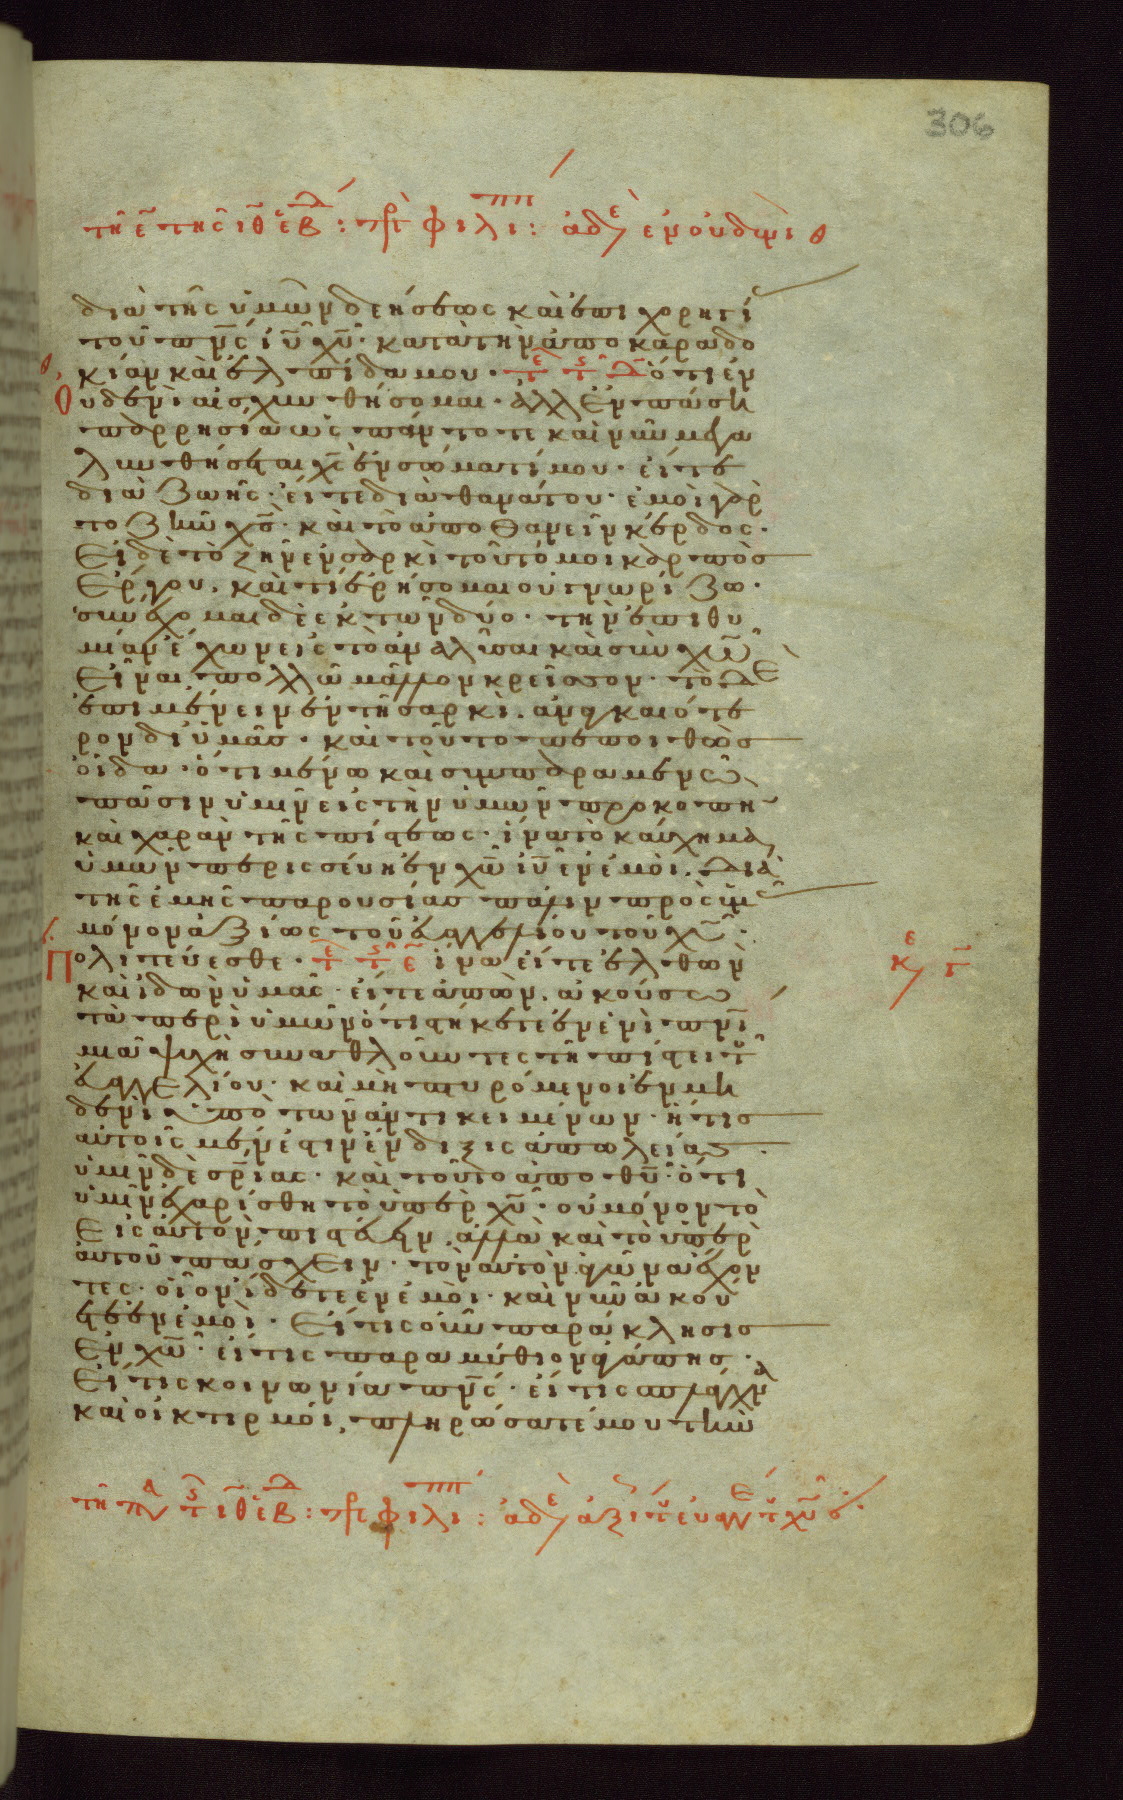 306
τῆ ε̄ τῆς ιθ ἑβδ : πρ φιλιππ : ἀδε ἐν οὐδενὶ
διὰ τῆς ὑμῶν δεήσεως καὶ ἐπιχορηγί
τοῦ πν̅ς ιυ̅ χυ̅· κατὰ τὴν ἀποκαραδο
κίαν καὶ ἐλπίδα μου· ὅτι ἐν
Οὐδενὶ αἰσχυνθήσομαι· ἀλλ' ἐν πάση
παρρησία ὡς πάντοτε καὶ νῦν μεγα
λυνθήσεται χς̅ ἐν σώματί μου· εἴτε
διὰ ζωῆς· εἴτε διὰ θανάτου· ἐμοὶ γὰρ
το ζῆν χς̅· καὶ τὸ ἀποθανεῖν κέρδος·
Εἰ δὲ τὸ ζῆν ἐν σαρκὶ τοῦτό μοι καρπὸσ
Ἔργου, καὶ τί ἐρήσομαι οὐ γνωρίζω·
συνέχομαι δὲ ἐκ τῶν δύο· τὴν ἐπιθυ
μίαν ἔχων εἰς τὸ ἀναλῦσαι καὶ σὺν χω̅
Εἶναι, πολλῶ μᾶλλον κρεῖσσον· τὸ δὲ
ἐπιμένειν ἐν τῆ σαρκὶ, ἀναγκαιότε
ρον δι' ὑμᾶσ· καὶ τοῦτο πεποιθὼσ
οἶδα· ὅτι μενῶ καὶ συμπαραμενῶ
πᾶσιν ὑμῖν εἰς τὴν ὑμῶν προκοπὴ
καὶ χαρὰν τῆς πίστεως· ἵνα τὸ καύχημα
ὑμῶν περισσεύη ἐν χω̅ ιυ̅ ἐν ἐμοὶ, διὰ
τῆς ἐμῆς παρουσίασ πάλιν πρὸς ὑμ
μόνον ἀξίως τοῦ εὐαγγελίου τοῦ χυ̅·
Πολιτεύεσθε· ἵνα εἴτε ἐλθὼν
καὶ ἰδὼν ὑμᾶς· εἴτε ἀπὼν, ἀκούσω
τὰ περὶ ὑμῶν ὅτι στήκετε ἐν ἑνὶ πνι̅
μιᾶ ψυχὴ συναθλοῦντες τῆ πίστει τοῦ
εὐαγγελίου· καὶ μὴ πτυρόμενοι ἐν μη
δενὶ ὑπὸ τῶν ἀντικειμένων· ἥτισ
αὐτοῖς μέν ἐστιν ἔνδιξις ἀπωλείασ·
ὑμῖν δὲ σρ̅ιας· καὶ τοῦτο ἀπο θυ̅· ὅτι
ὑμῖν ἐχαρίσθη τὸ ὑπὲρ χυ̅· οὐ μόνον τὸ
Εἰς αὐτὸν πιστεύειν, ἀλλὰ καὶ τὸ ὑπὲρ
αὐτοῦ πάσχειν· τὸν αὐτὸν ἀγῶνα ἔχον
τες· οἷον ἴδετε ἐν ἐμοὶ· καὶ νῦν ἀκού
ετε ἐν ἐμοὶ· Εἴ τις οὖν παράκλησισ
Ἐν χω̅· εἴ τις παραμύθιον ἀγάπησ·
Εἴ τις κοινωνία πν̅ς· εἴ τις σπλάγχνα
καὶ οἰκτιρμοί, πληρώσατέ μου τὴν
τῆ ιθ ἑβδ : πρ φιλιππ : ἀδε ἀξι τοῦ εὐαγγ τοῦ χυ̅